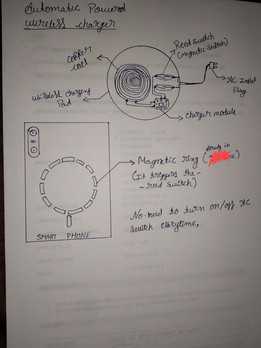 Automatic Powered
wireless charger
Reed switch
(magnetic switch)
copper
coil
AC input
Plug
wireless charging
Pad
charger module
Magnetic ring (
(It triggers the
reed switch)
No need to turn on/off AC
switch everytime,
SMART PHONE